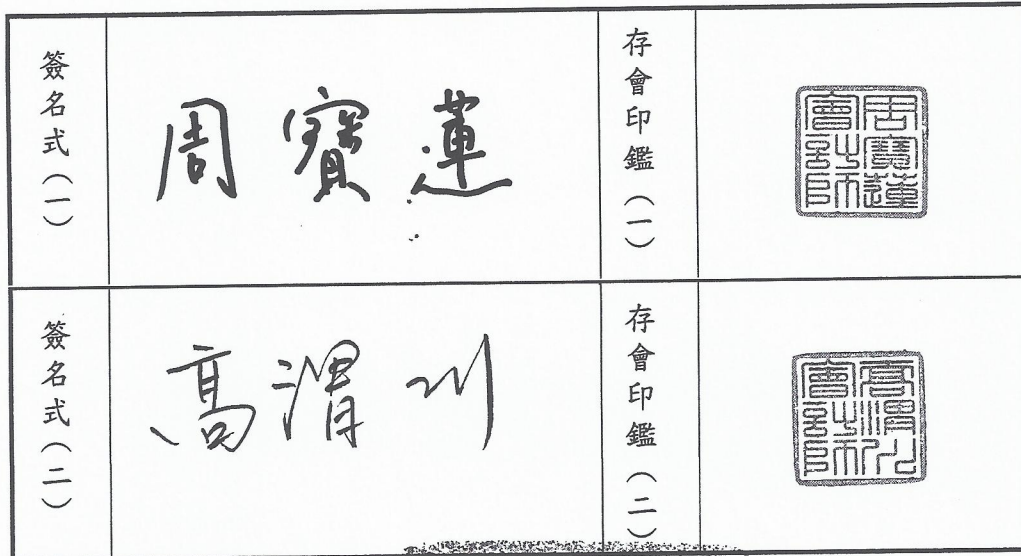 簽名式(一)
周寶蓮
存會印鑑(一)
周寶蓮
會計師
簽名式(二)
高渭川
存會印鑑(二)
高渭川
會計師